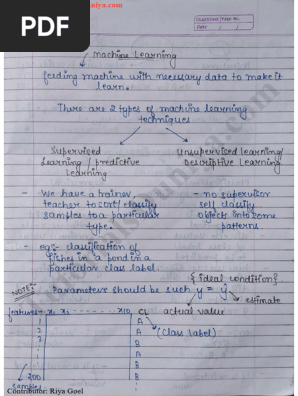 PDF
Machine Learning
feeding machine with necessary data to make it
learn.
There are 2 types of machine learning
techniques
Supervised
Learning / predictive
Learning
Unsupervised learning/
Descriptive Learning
- We have a trainer,
teacher to sort/classify
samples to a particular
type.
- no supervisor
self classify
object into some
patterns
- eg:- classification of
fishes in a pond in a
particular class label.
{ideal condition}
NOTE:- Parameters should be such y = ŷ
estimate
actual value
features→ x₁ x₂ -------- x₁₀ CL
1 A
2 A (class label)
3 A
B
A
B
B
200 A
samples
Contributor: Riya Goel